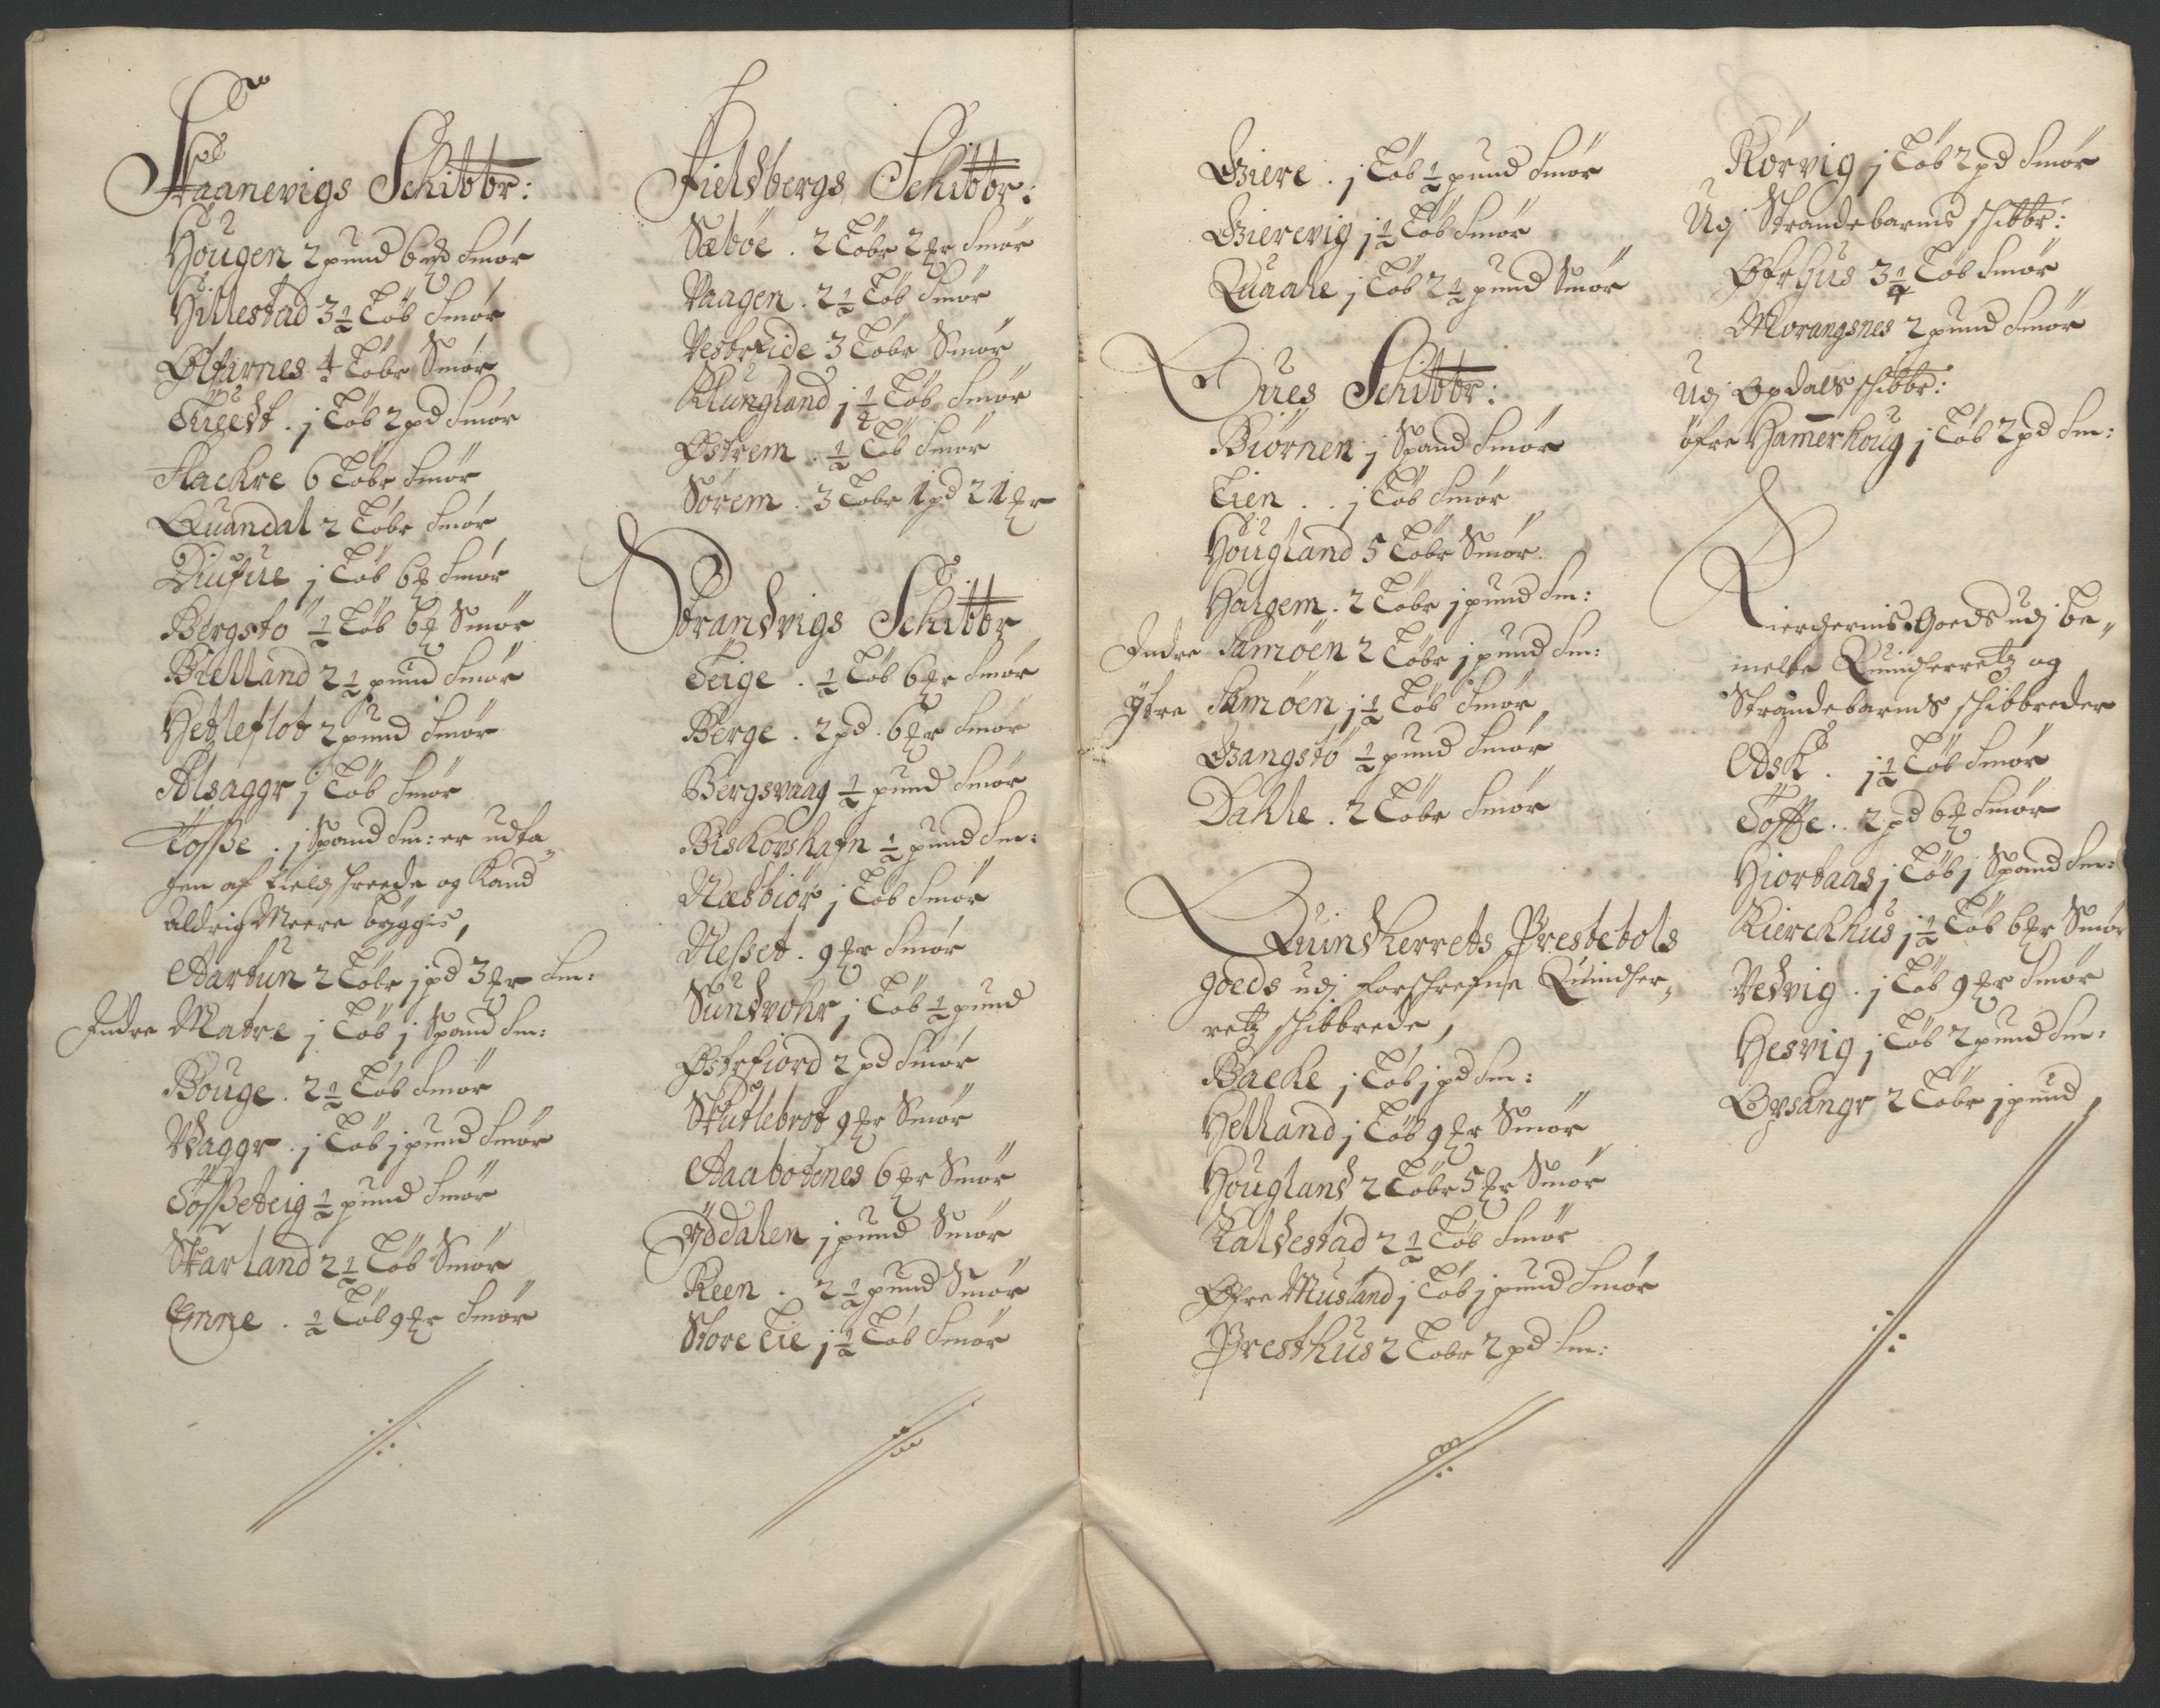 Skaanevigs Schibbr:
Hougen 2 pund 6 mrk Smør
Hillestad 3½ Løb Smør
Ølfarnes 4 Løbr Smør
Tueedt . j Løb 2 pd Smør
Flackre 6 Løbr Smør
Quandal 2 Løbr Smør
Diufue j Løb 6 mrk Smør
Bergstø ½ Løb 6 mrk Smør
Bielland 2½ pund Smør
Hetleflot 2 pund Smør
Alsaggr j Løb Smør
Tosße . j Spand Sm: er udta„
gen af field schreede og Kand
aldrig Meere byggis,
Aartun 2 Løbr j pd 3 mrkr Sm:
Indre Matre j Løb j Spand Sm:
Bouge . 2½ Løb Smør
Vdaggr . j Løb j pund Smør
Tosßeteig ½ pund Smør
Skarland 2½ Løb Smør
Emne . ½ Løb 9 mrkr Smør
Fieldbergs Schibbr:
Sæbøe . 2 Løbr 2 mrkr Smør
Vaagen . 2½ Løb Smør
Vestrside 3 Løbr Smør
Klungland j¼ Løb Smør
Østrem . ½ Løb Smør
Sørem . 3 Løbr 1 pd 21 mrkr
Strandvigs Schibbr
Teige . ½ Løb 6 mrkr Smør
Berge . 2 pd . 6 mrkr Smør
Bergsvaag ½ pund Smør
Biskopshafn ½ pund Sm:
Næsbiør j Løb Smør
Nesset . 9 mrkr Smør
Sundvohr j Løb ½ pund
Østrefiord 2 pd Smør
Skutlebrot 9 mrkr Smør
Aaabotnes 6 mrkr Smør
Yddalen j pund Smør
Reen . 2½ pund Smør
Store Lie j½ Løb Smør
Giere . j Løb ½ pund Smør
Gierevig j½ Løb Smør
Quaale j Løb 2½ pund Smør
Oues Schibbr:
Biørnen j Spand Smør
Lien . . j Løb Smør
Hougland 5 Løbr Smør
Halgem . 2 Løbr j pund Sm:
Indre Samøen 2 Løbr j pund Sm:
Ytre Samøen j½ Løb Smør
Gangstø ½ pund Smør
Dahle . 2 Løbr Smør
Quindherrets Prestebols
goeds udj forschrefne Quindher„
retz schibbrede,
Backe j Løb j pd Sm:
Helland j Løb 9 mrkr Smør
Hougland 2 Løbr 5 mrkr Smør
Kaldestad 2½ Løb Smør
Øfre Musland j Løb j pund Smør
Presthus 2 Løbr 2 pd Sm:
Rørvig j Løb 2 pd Smør
Udj Strandebarms schibbr:
Øfrhus 3¼ Løb Smør
Morangsnes 2 pund Smør
Udj Opdals schibbr:
øfre Hamerhoug j Løb 2 pd Sm:
Kierchernis Goeds udj be„
melte Quindherretz og
Strandebarms schibbreder
Adsk . j½ Løb Smør
Toffte . . 2 pd 6 mrk Smør
Hiortaas j Løb j Spand Sm:
Kierckhus j½ Løb 6 mrkr Smør
Vedvig . j Løb 9 mrkr Smør
Hesvig j Løb 2 pund Sm:
Opsangr 2 Løbr j pund,